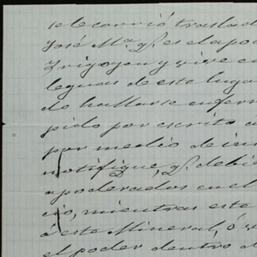 se le corrió traslad
José Ma. q. es el apo
Yrigoyen y vive en
leguas de este luga
do hallarse enferm
pido por escrito a
por medio de
notifique, q. debie
apoderados en el
cio, mientras este
á este Mineral, ó
el poder dentro d